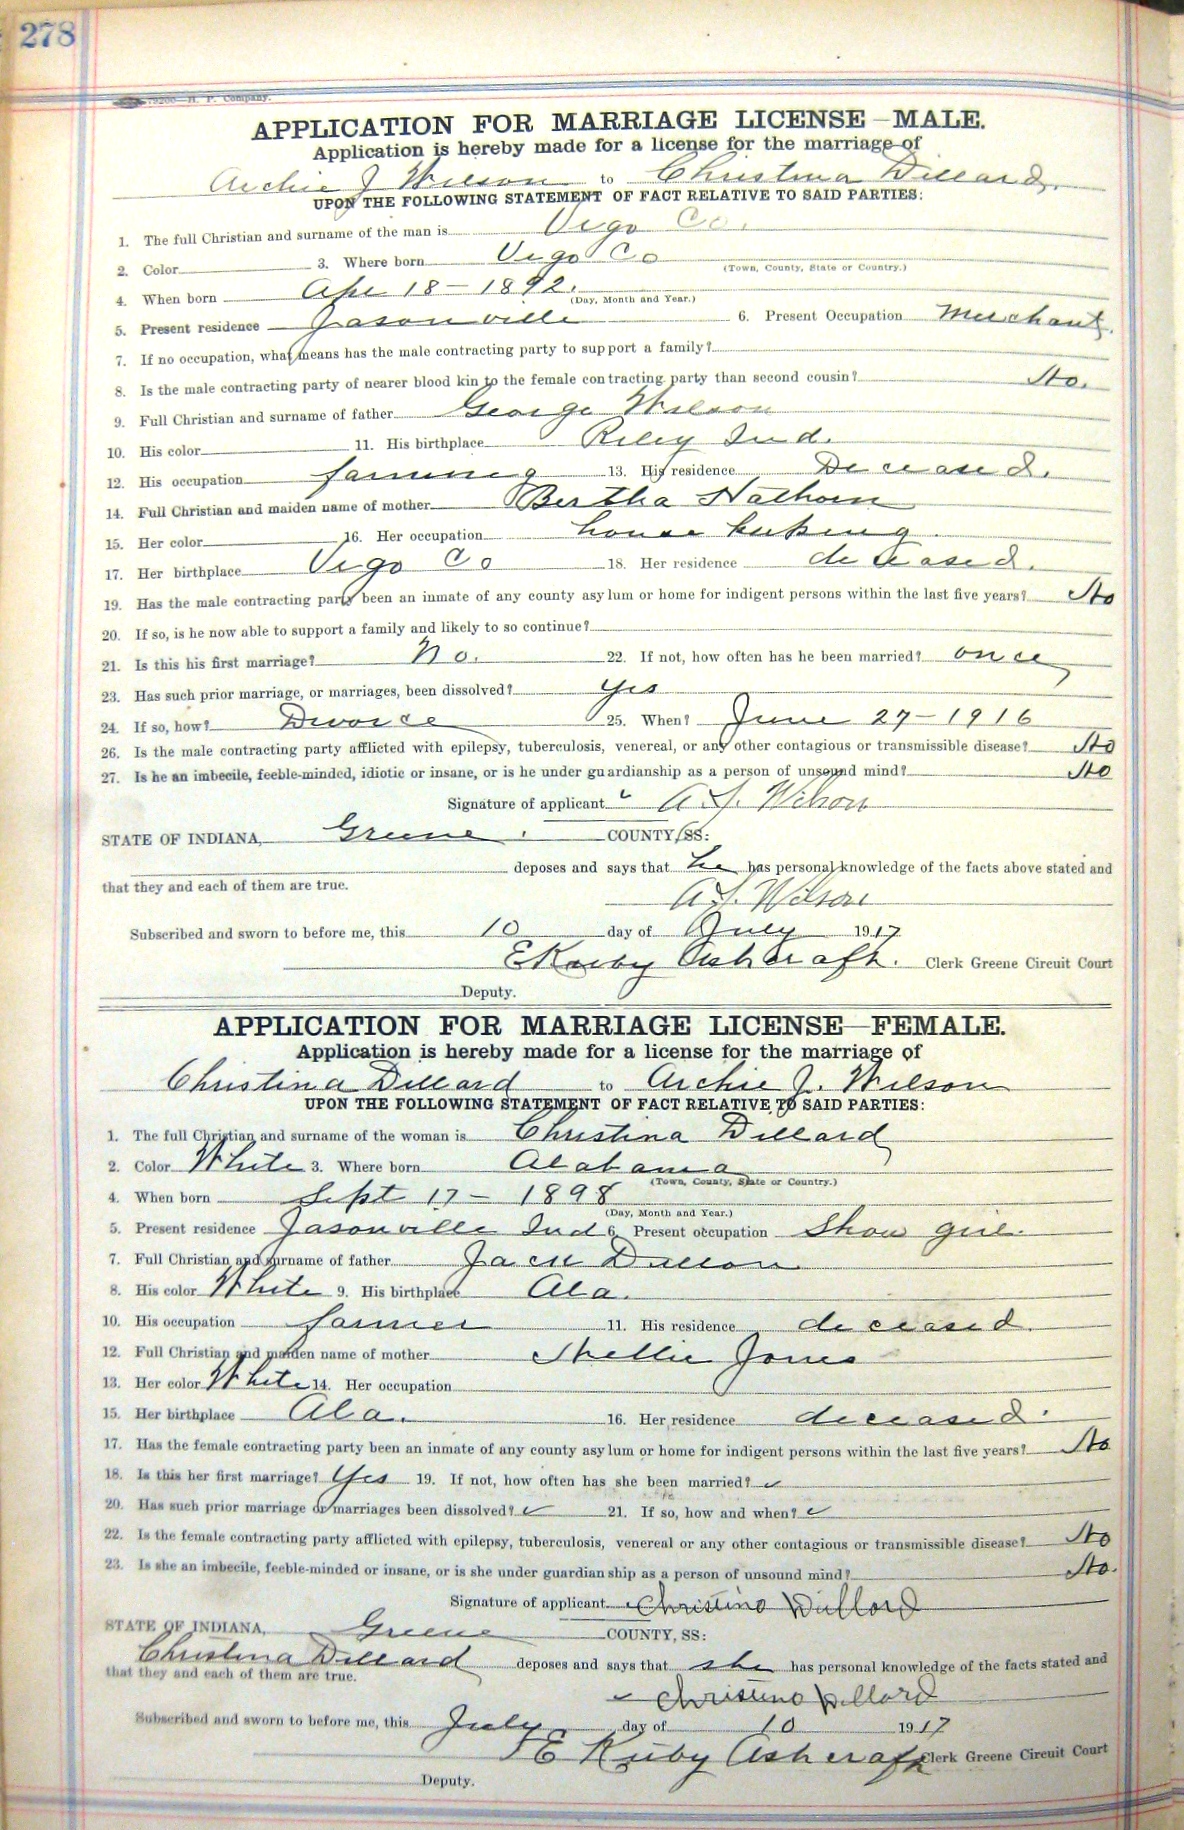 278
79200—H. P. Company.
APPLICATION FOR MARRIAGE LICENSE—MALE.
Application is hereby made for a license for the marriage of
Archie J Wilson to Christina Dillard.
UPON THE FOLLOWING STATEMENT OF FACT RELATIVE TO SAID PARTIES:
1. The full Christian and surname of the man is Vigo Co.
2. Color 3. Where born Vigo Co
(Town, County, State or Country.)
4. When born Apr 18 - 1892.
(Day, Month and Year.)
5. Present residence Jasonville 6. Present Occupation Merchant.
7. If no occupation, what means has the male contracting party to support a family?
8. Is the male contracting party of nearer blood kin to the female contracting party than second cousin? No.
9. Full Christian and surname of father George Wilson
10. His color 11. His birthplace Riley Ind.
12. His occupation farming 13. His residence Deceased.
14. Full Christian and maiden name of mother Bertha
15. Her color 16. Her occupation house keeping.
17. Her birthplace Vigo Co 18. Her residence deceased.
19. Has the male contracting party been an inmate of any county asylum or home for indigent persons within the last five years? No
20. If so, is he now able to support a family and likely to so continue?
21. Is this his first marriage? No. 22. If not, how often has he been married? once
23. Has such prior marriage, or marriages, been dissolved? Yes
24. If so, how? Divorce 25. When? June 27 - 1916
26. Is the male contracting party afflicted with epilepsy, tuberculosis, venereal, or any other contagious or transmissible disease? No
27. Is he an imbecile, feeble-minded, idiotic or insane, or is he under guardianship as a person of unsound mind? No
Signature of applicant A. J. Wilson
STATE OF INDIANA, Greene COUNTY, SS:
deposes and says that he has personal knowledge of the facts above stated and
that they and each of them are true.
A. J. Wilson
Subscribed and sworn to before me, this 10 day of July 1917
E Kirby Ashcraft. Clerk Greene Circuit Court
Deputy.
APPLICATION FOR MARRIAGE LICENSE—FEMALE.
Application is hereby made for a license for the marriage of
Christina Dillard to Archie J. Wilson
UPON THE FOLLOWING STATEMENT OF FACT RELATIVE TO SAID PARTIES:
1. The full Christian and surname of the woman is Christina Dillard
2. Color White 3. Where born Alabama
(Town, County, State or Country.)
4. When born Sept 17 - 1898
(Day, Month and Year.)
5. Present residence Jasonville Ind 6. Present occupation Show girl.
7. Full Christian and surname of father Jack
8. His color White 9. His birthplace Ala.
10. His occupation farmer 11. His residence deceased.
12. Full Christian and maiden name of mother Jones
13. Her color White 14. Her occupation
15. Her birthplace Ala. 16. Her residence deceased.
17. Has the female contracting party been an inmate of any county asylum or home for indigent persons within the last five years? No
18. Is this her first marriage? Yes 19. If not, how often has she been married? ✓
20. Has such prior marriage or marriages been dissolved? ✓ 21. If so, how and when? ✓
22. Is the female contracting party afflicted with epilepsy, tuberculosis, venereal or any other contagious or transmissible disease? No
23. Is she an imbecile, feeble-minded or insane, or is she under guardianship as a person of unsound mind? No.
Signature of applicant Christina Dillard
STATE OF INDIANA, Greene COUNTY, SS:
Christina Dillard deposes and says that she has personal knowledge of the facts stated and
that they and each of them are true.
Christina Dillard
Subscribed and sworn to before me, this July day of 10 1917
E Kirby Ashcraft Clerk Greene Circuit Court
Deputy.